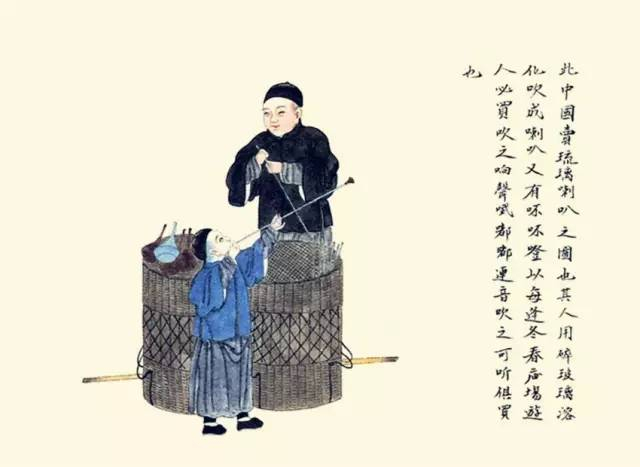 此中國賣琉璃喇叭之圖也其人用碎玻璃溶
化吹成喇叭又有咊咊噔以每逢冬春厺場遊
人必買吹之响聲哦嘟嘟連音吹之可听俱買
也